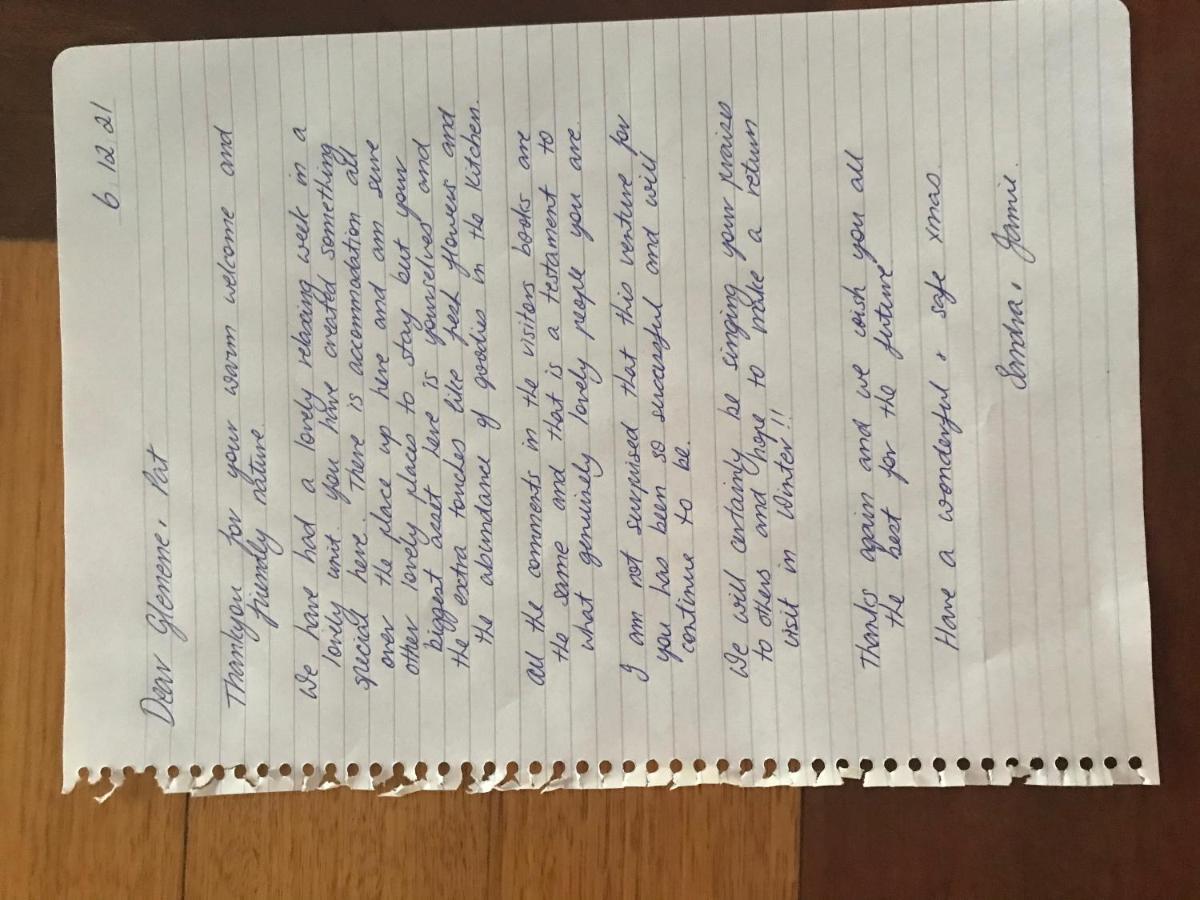 6.12.21
Dear Glenene & Pat
Thankyou for your warm welcome and
friendly nature
We have had a lovely relaxing week in a
lovely unit you have created something
special here. There is accommodation all
over the place up here and am sure
other lovely places to stay but your
biggest asset here is yourselves and
the extra touches like fresh flowers and
the abundance of goodies in the kitchen.
All the comments in the visitors books are
the same and that is a testament to
what genuinely lovely people you are.
I am not surprised that this venture for
you has been so successful and will
continue to be.
We will certainly be singing your praises
to others and hope to make a return
visit in Winter!!
Thanks again and we wish you all
the best for the future
Have a wonderful & safe xmas
Sandra &